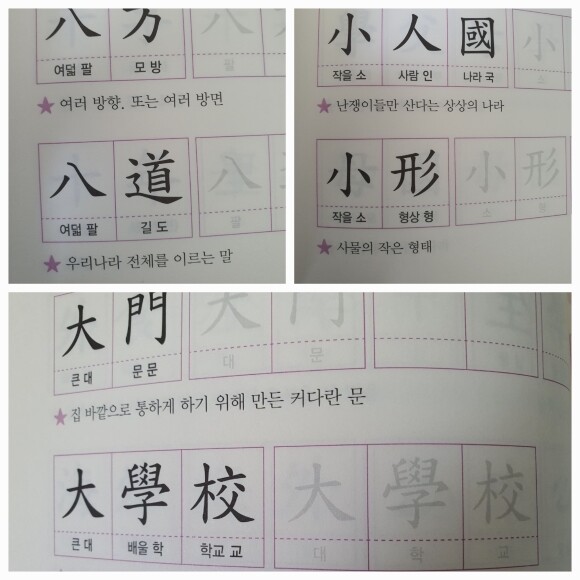 八 方 八
여덟 팔 모 방 팔
★ 여러 방향. 또는 여러 방면
八 道 八
여덟 팔 길 도 팔
★ 우리나라 전체를 이르는 말
小 人 國 小
작을 소 사람 인 나라 국 소
★ 난쟁이들만 산다는 상상의 나라
小 形 小 形
작을 소 형상 형 소 형
★ 사물의 작은 형태
大 門 大 門
큰 대 문 문 대 문
★ 집 바깥으로 통하게 하기 위해 만든 커다란 문
大 學 校 大 學 校
큰 대 배울 학 학교 교 대 학 교